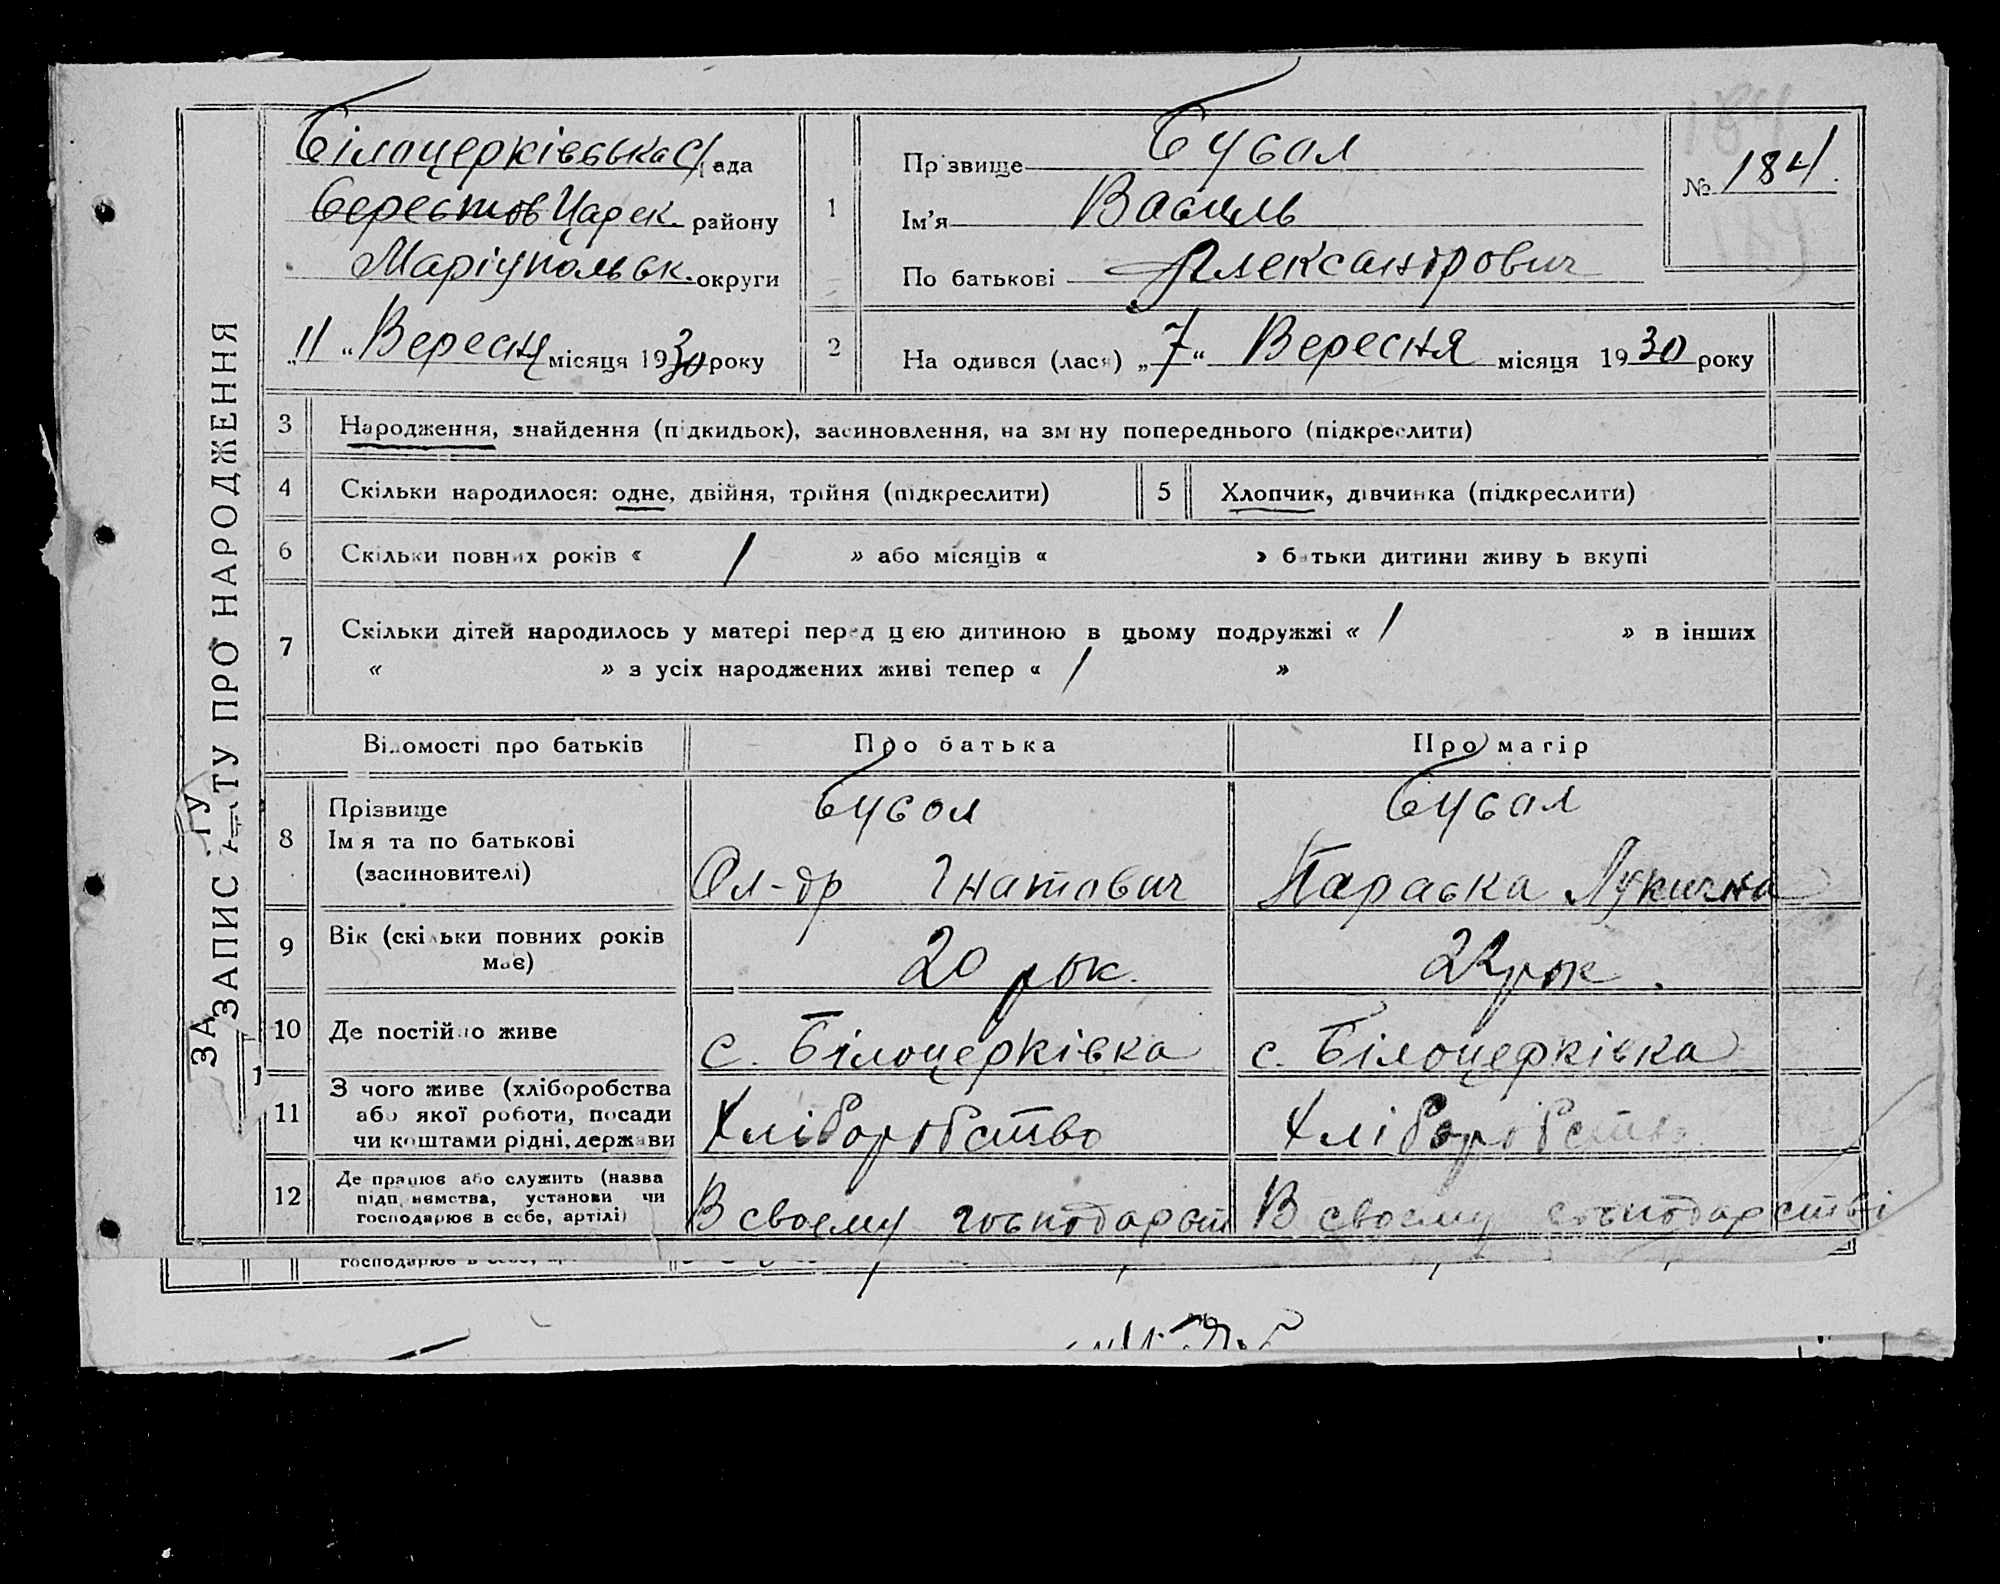 ЗАПИС АКТУ ПРО НАРОДЖЕННЯ
Білоцерківська с/рада
Берестов Царек. району
Маріупольськ. округи
„11“ Вересня місяця 1930 року
1
Прізвище Бубал
Ім’я Василь
По батькові Александрович
№ 184.
2
Народився (лася) „7“ Вересня місяця 1930 року
3 Народження, знайдення (підкидьок), засиновлення, на зміну попереднього (підкреслити)
4 Скільки народилося: одне, двійня, трійня (підкреслити)
5 Хлопчик, дівчинка (підкреслити)
6 Скільки повних років « / » або місяців « » батьки дитини живуть вкупі
7 Скільки дітей народилось у матері перед цією дитиною в цьому подружжі « / » в інших
« » з усіх народжених живі тепер « / »
Відомості про батьків Про батька Про матір
8 Прізвище
Ім я та по батькові
(засиновителі)
Бубол
Ол-др Гнатович
Бубал
Параска Лукична
9 Вік (скільки повних років
має)
20 рок.
22 рок.
10 Де постійно живе
с. Білоцерківка
с. Білоцерківка
11 З чого живе (хліборобства
або якої роботи, посади
чи коштами рідні, держави
Хліборобство
Хліборобство
12 Де працює або служить (назва
підприємства, установи чи
господарює в себе, артілі)
В своєму господарст
В своєму господарстві